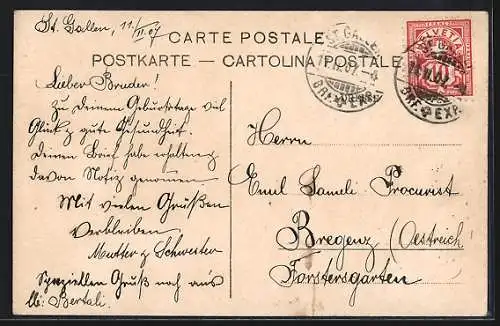 St. Gallen, 11./II. 07
CARTE POSTALE
POSTKARTE — CARTOLINA POSTALE
Lieber Bruder!
Zu Deinem Geburtstage viel
Glück & gute Gesundheit.
Deinen Brief habe erhalten &
davon Notiz genommen
Mit vielen Grüßen
verbleiben
Mutter & Schwester
Speziellen Gruß noch aus
lb. Bertali.
ST. GALLEN
BRF. EXP.
HELVETIA
10
ST. GALLEN
BRF. EXP.
Herrn
Emil Sameli Procurist
Bregenz (Oestreich
Forstersgarten